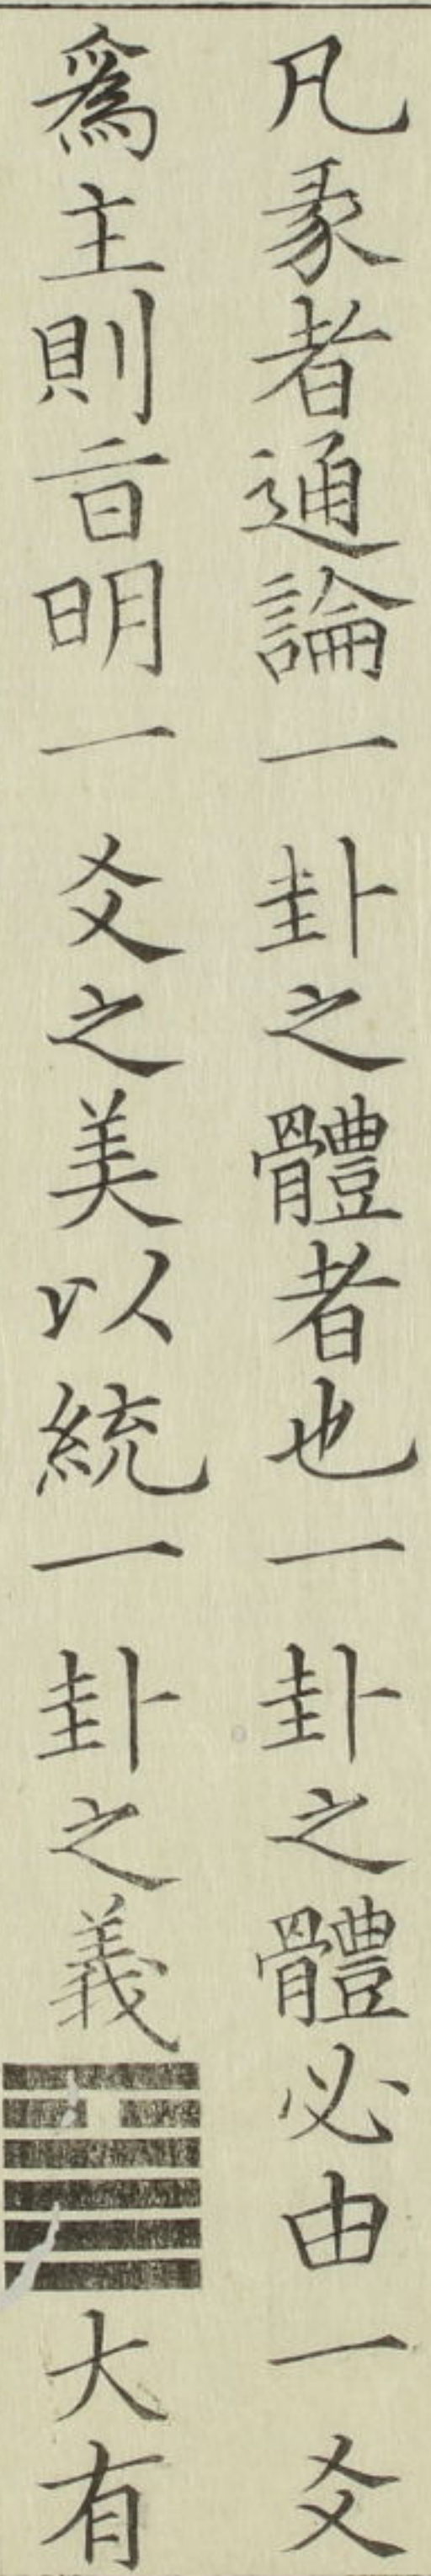 凡彖者通論一卦之體者也一卦之體必由一爻
爲主則㫖明一爻之美以統一卦之義䷍大有